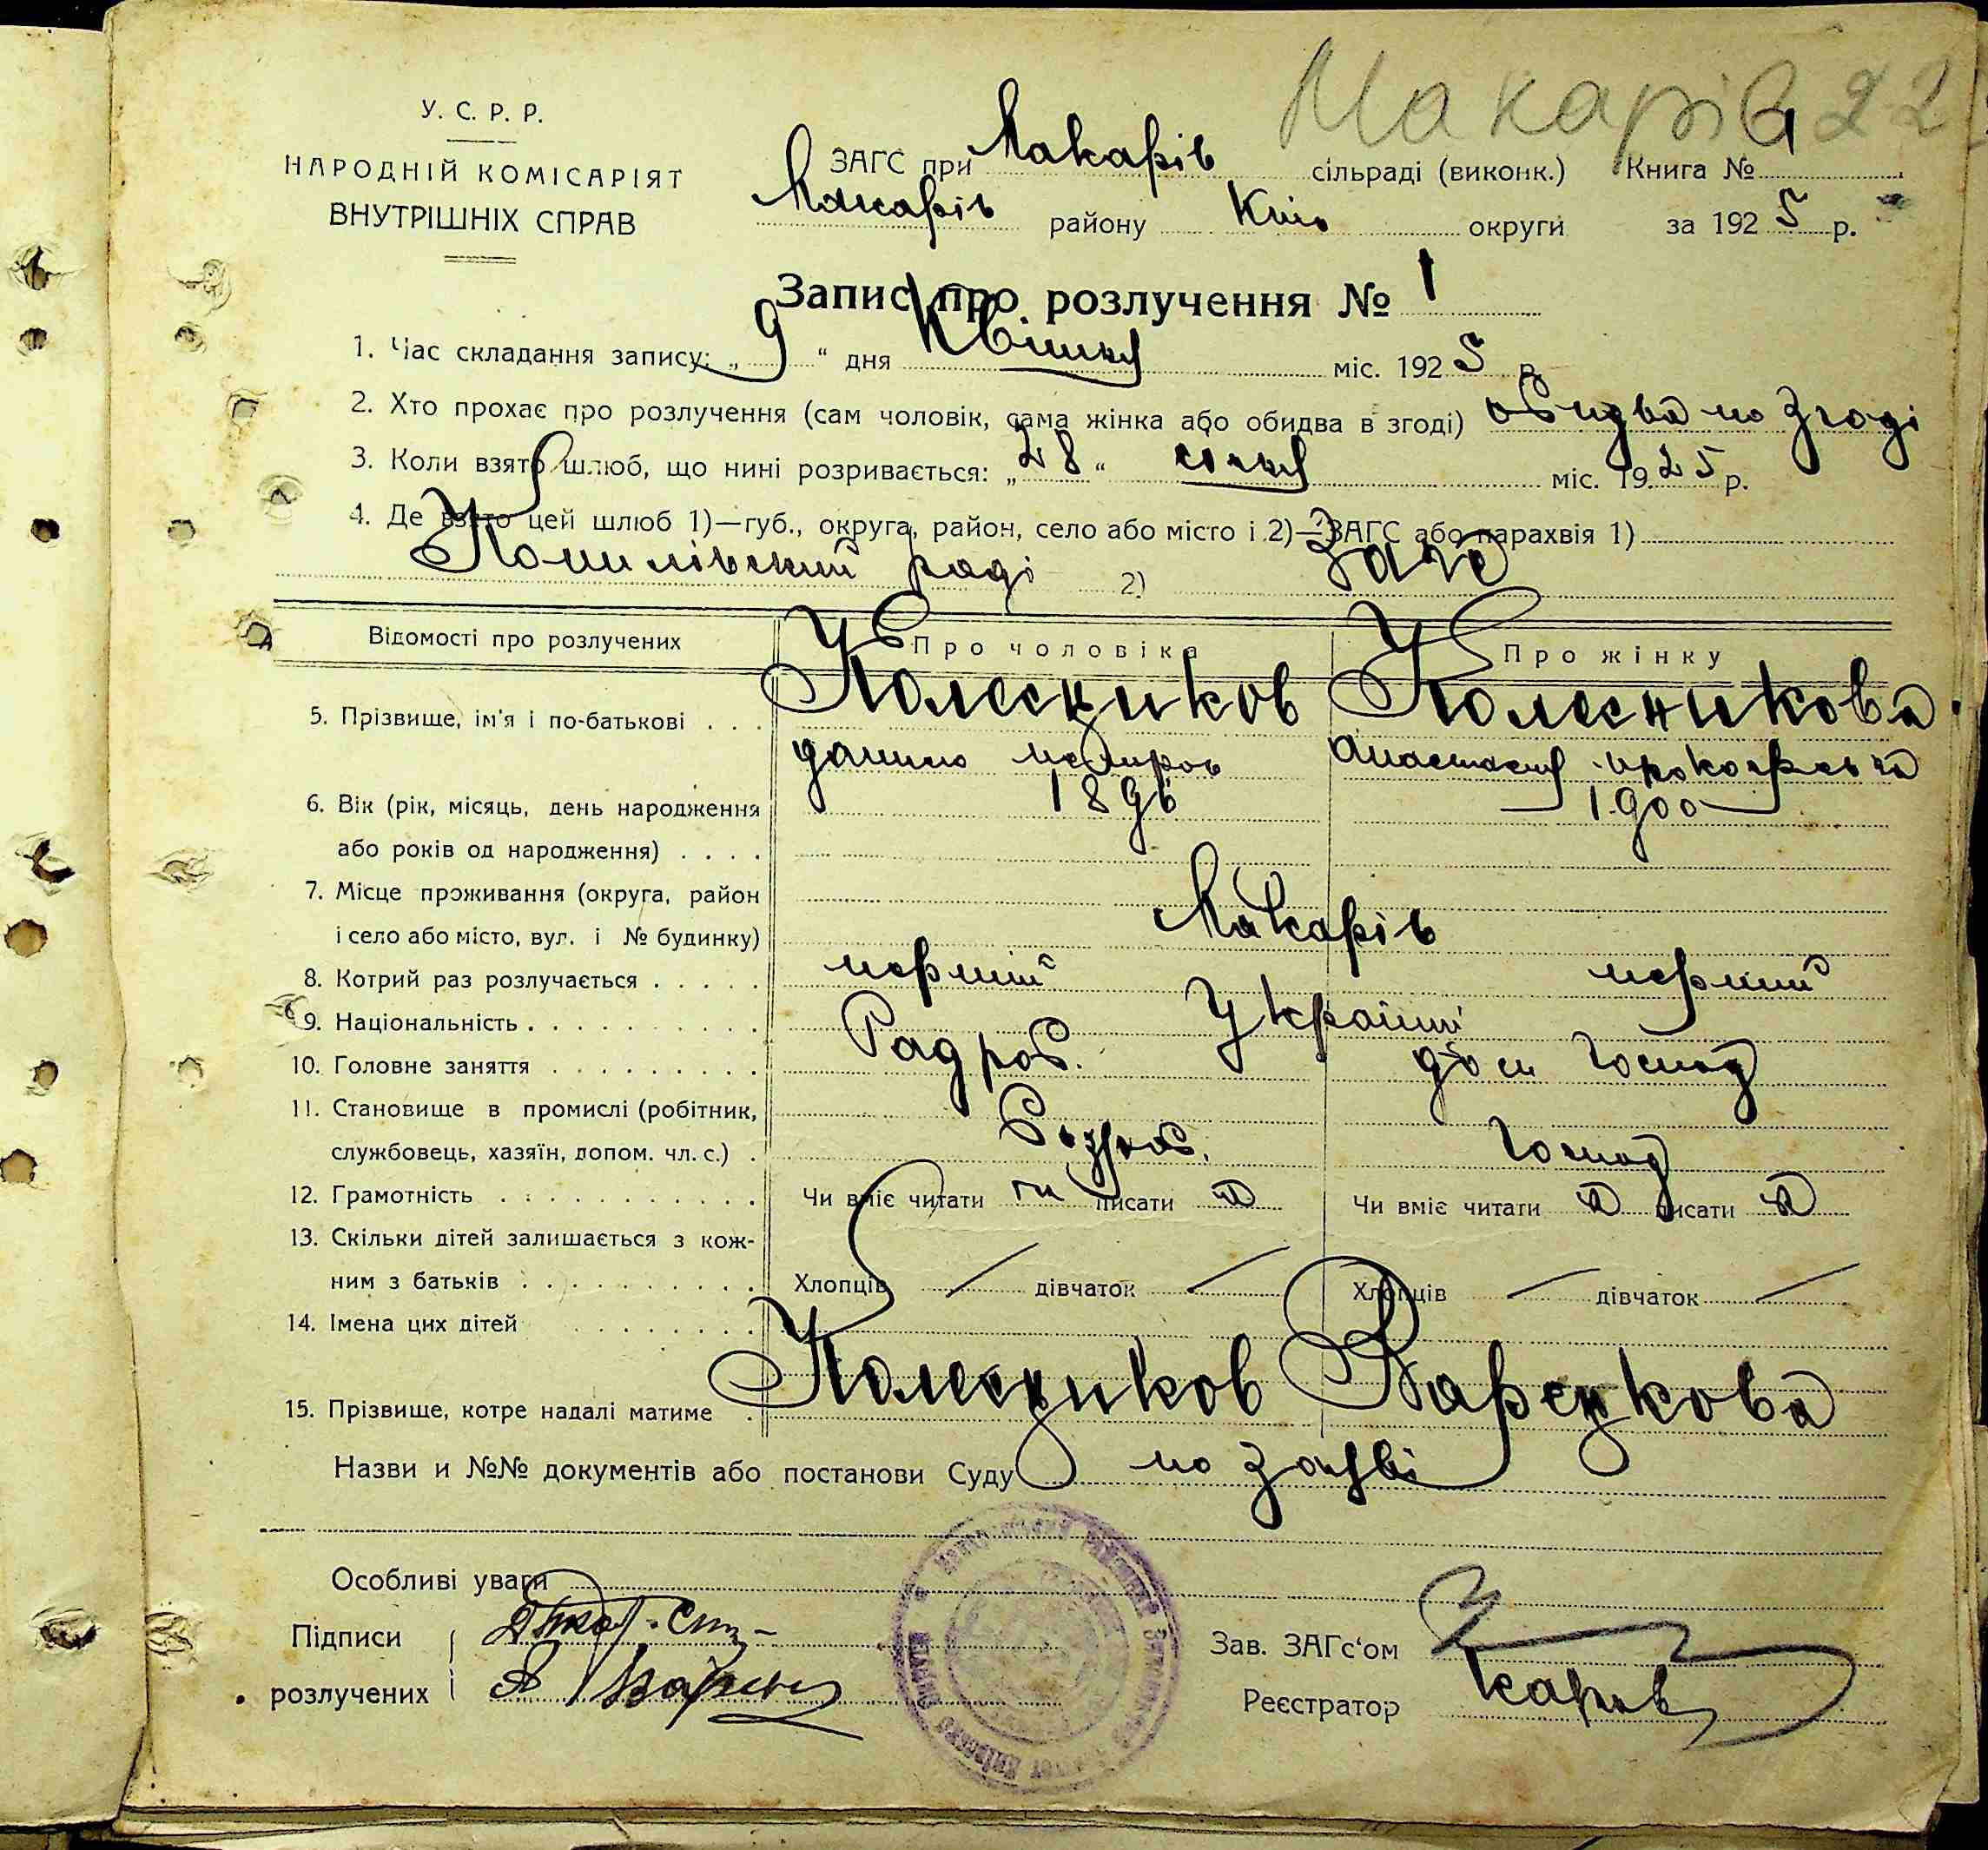 Макарів 22
У. С. Р. Р.
НАРОДНІЙ КОМІСАРІЯТ
ВНУТРІШНІХ СПРАВ
ЗАГС при Макарів сільраді (виконк.) Книга № 1
Макарів району Київ округи за 1925 р.
Запис про розлучення № 1
1. Час складання запису: „9“ дня Квітня міс. 1925 р.
2. Хто прохає про розлучення (сам чоловік, сама жінка або обидва в згоді) обидва по згоді
3. Коли взято шлюб, що нині розривається: „28“ січня міс. 1925 р.
4. Де взято цей шлюб 1)—губ., округа, район, село або місто і 2)—ЗАГС або парахвія 1)
раді 2) Загс
Відомості про розлучених Про чоловіка Про жінку
5. Прізвище, ім'я і по-батькові . . . Колесников Колесникова
данило Анастасія прокофьевна
6. Вік (рік, місяць, день народження 1896 1900
або років од народження) . . . .
7. Місце проживання (округа, район
і село або місто, вул. і № будинку) Макарів
8. Котрий раз розлучається . . . . . перший перший
9. Національність . . . . . . . . . . Україн
10. Головне заняття . . . . . . . . . Рад роб. дом господ
11. Становище в промислі (робітник,
службовець, хазяїн, допом. чл. с.) . господ
12. Грамотність . . . . . . . . . . . Чи вміє читати так писати так Чи вміє читати так писати так
13. Скільки дітей залишається з кож-
ним з батьків . . . . . . . . . . Хлопців / дівчаток / Хлопців / дівчаток /
14. Імена цих дітей . . . . . . . .
15. Прізвище, котре надалі матиме . Колесников Варенкова
Назви и №№ документів або постанови Суду по заяві
Особливі уваги
Підписи
розлучених
Зав. ЗАГс'ом
Реєстратор